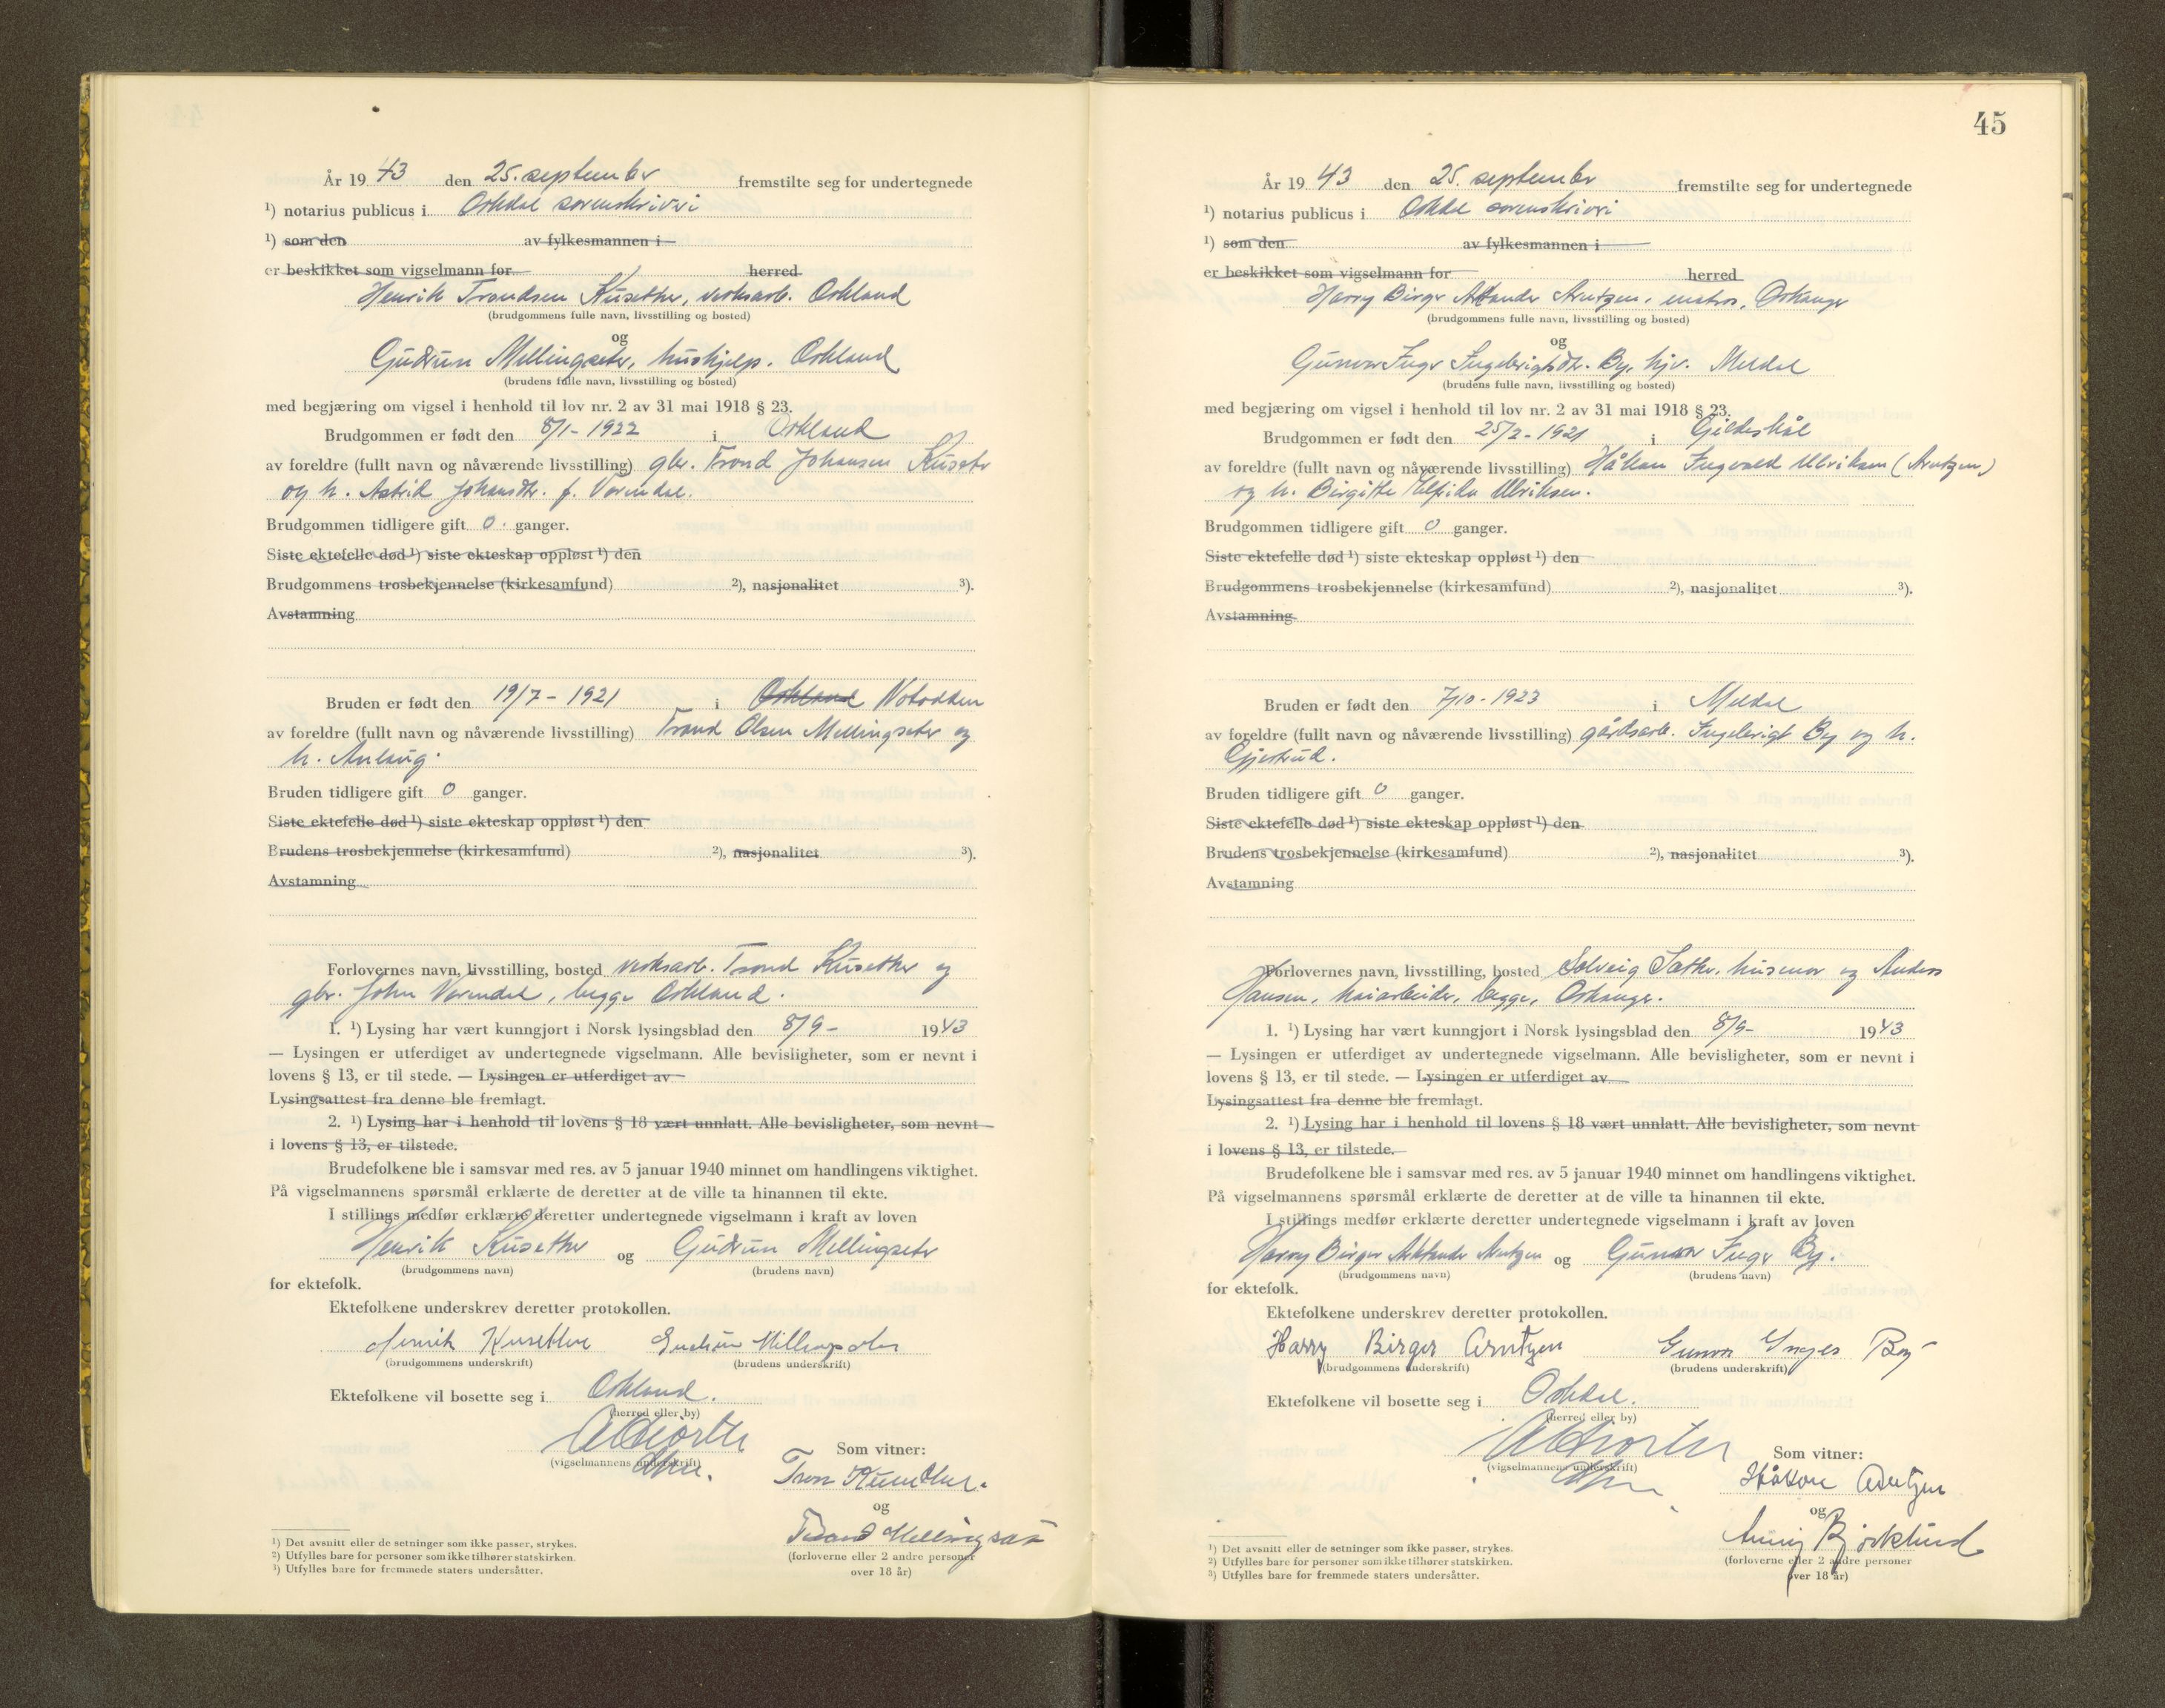 År 19 43 den 25. september fremstilte seg for undertegnede
¹) notarius publicus i Orkdal sorenskriveri
¹) som den av fylkesmannen i
er beskikket som vigselmann for herred
Henrik Trondsen Kusether, verksarb. Orkland
(brudgommens fulle navn, livsstilling og bosted)
og
Gudrun Mellingseter, hushjelp. Orkland
(brudens fulle navn, livsstilling og bosted)
med begjæring om vigsel i henhold til lov nr. 2 av 31 mai 1918 § 23.
Brudgommen er født den 8/1-1922 i Orkland
av foreldre (fullt navn og nåværende livsstilling) gbr. Trond Johansen Kuseter
og h. Astrid Johansdtr. f. Vorendal.
Brudgommen tidligere gift 0 ganger.
Siste ektefelle død ¹) siste ekteskap oppløst ¹) den
Brudgommens trosbekjennelse (kirkesamfund) ²), nasjonalitet ³).
Avstamning
Bruden er født den 19/7-1921 i Orkland Notodden
av foreldre (fullt navn og nåværende livsstilling) Trond Olsen Mellingseter og
h. Anlaug.
Bruden tidligere gift 0 ganger.
Siste ektefelle død ¹) siste ekteskap oppløst ¹) den
Brudens trosbekjennelse (kirkesamfund) ²), nasjonalitet ³).
Avstamning
Forlovernes navn, livsstilling, bosted verksarb. Trond Kusether og
gbr. John Vorendal, begge Orkland.
1. ¹) Lysing har vært kunngjort i Norsk lysingsblad den 8/9- 1943
— Lysingen er utferdiget av undertegnede vigselmann. Alle bevisligheter, som er nevnt i
lovens § 13, er til stede. — Lysingen er utferdiget av
Lysingsattest fra denne ble fremlagt.
2. ¹) Lysing har i henhold til lovens § 18 vært unnlatt. Alle bevisligheter, som nevnt
i lovens § 13, er tilstede.
Brudefolkene ble i samsvar med res. av 5 januar 1940 minnet om handlingens viktighet.
På vigselmannens spørsmål erklærte de deretter at de ville ta hinannen til ekte.
I stillings medfør erklærte deretter undertegnede vigselmann i kraft av loven
Henrik Kusether og Gudrun Mellingseter
(brudgommens navn) (brudens navn)
for ektefolk.
Ektefolkene underskrev deretter protokollen.
Henrik Kusether Gudrun Mellingseter
(brudgommens underskrift) (brudens underskrift)
Ektefolkene vil bosette seg i Orkland.
(herred eller by)
(vigselmannens underskrift) Som vitner:
Tron Kusether.
og
Trond Mellingsæt
(forloverne eller 2 andre personer
over 18 år)
¹) Det avsnitt eller de setninger som ikke passer, strykes.
²) Utfylles bare for personer som ikke tilhører statskirken.
³) Utfylles bare for fremmede staters undersåtter.
45
År 19 43 den 25. september fremstilte seg for undertegnede
¹) notarius publicus i Orkdal sorenskriveri
¹) som den av fylkesmannen i
er beskikket som vigselmann for herred
Harry Birger Arntzen, matros, Orkanger
(brudgommens fulle navn, livsstilling og bosted)
og
Gunvor Inger Ingebrigtsdtr. By, hjv. Meldal
(brudens fulle navn, livsstilling og bosted)
med begjæring om vigsel i henhold til lov nr. 2 av 31 mai 1918 § 23.
Brudgommen er født den 25/2-1921 i Gildeskål
av foreldre (fullt navn og nåværende livsstilling) Håkon Ingvald Ulriksen (Arntzen)
og h. Birgitte Elfrida Ulriksen.
Brudgommen tidligere gift 0 ganger.
Siste ektefelle død ¹) siste ekteskap oppløst ¹) den
Brudgommens trosbekjennelse (kirkesamfund) ²), nasjonalitet ³).
Avstamning
Bruden er født den 7/10-1923 i Meldal
av foreldre (fullt navn og nåværende livsstilling) gårdsarb. Ingebrigt By og h.
Gjertrud.
Bruden tidligere gift 0 ganger.
Siste ektefelle død ¹) siste ekteskap oppløst ¹) den
Brudens trosbekjennelse (kirkesamfund) ²), nasjonalitet ³).
Avstamning
Forlovernes navn, livsstilling, bosted Solveig Sæther, husmor og Anders
Jansen, kaiarbeider, begge, Orkanger.
1. ¹) Lysing har vært kunngjort i Norsk lysingsblad den 8/9- 1943
— Lysingen er utferdiget av undertegnede vigselmann. Alle bevisligheter, som er nevnt i
lovens § 13, er til stede. — Lysingen er utferdiget av
Lysingsattest fra denne ble fremlagt.
2. ¹) Lysing har i henhold til lovens § 18 vært unnlatt. Alle bevisligheter, som nevnt
i lovens § 13, er tilstede.
Brudefolkene ble i samsvar med res. av 5 januar 1940 minnet om handlingens viktighet.
På vigselmannens spørsmål erklærte de deretter at de ville ta hinannen til ekte.
I stillings medfør erklærte deretter undertegnede vigselmann i kraft av loven
Harry Birger Arntzen og Gunvor Inger By.
(brudgommens navn) (brudens navn)
for ektefolk.
Ektefolkene underskrev deretter protokollen.
Harry Birger Arntzen Gunvor Inger By
(brudgommens underskrift) (brudens underskrift)
Ektefolkene vil bosette seg i Orkdal.
(herred eller by)
(vigselmannens underskrift) Som vitner:
Håkon Arntzen
og
Anny Bjørklund
(forloverne eller 2 andre personer
over 18 år)
¹) Det avsnitt eller de setninger som ikke passer, strykes.
²) Utfylles bare for personer som ikke tilhører statskirken.
³) Utfylles bare for fremmede staters undersåtter.